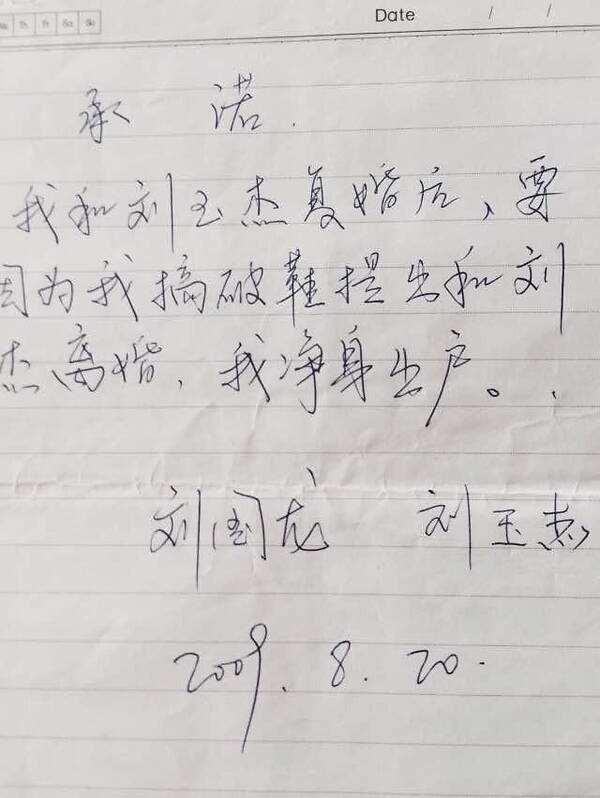 Th Fr Sa Su
Date / /
承 诺.
我和刘玉杰复婚后、要
因为我搞破鞋提出和刘
杰离婚、我净身出户。.
刘国龙 刘玉杰
2009. 8. 20.